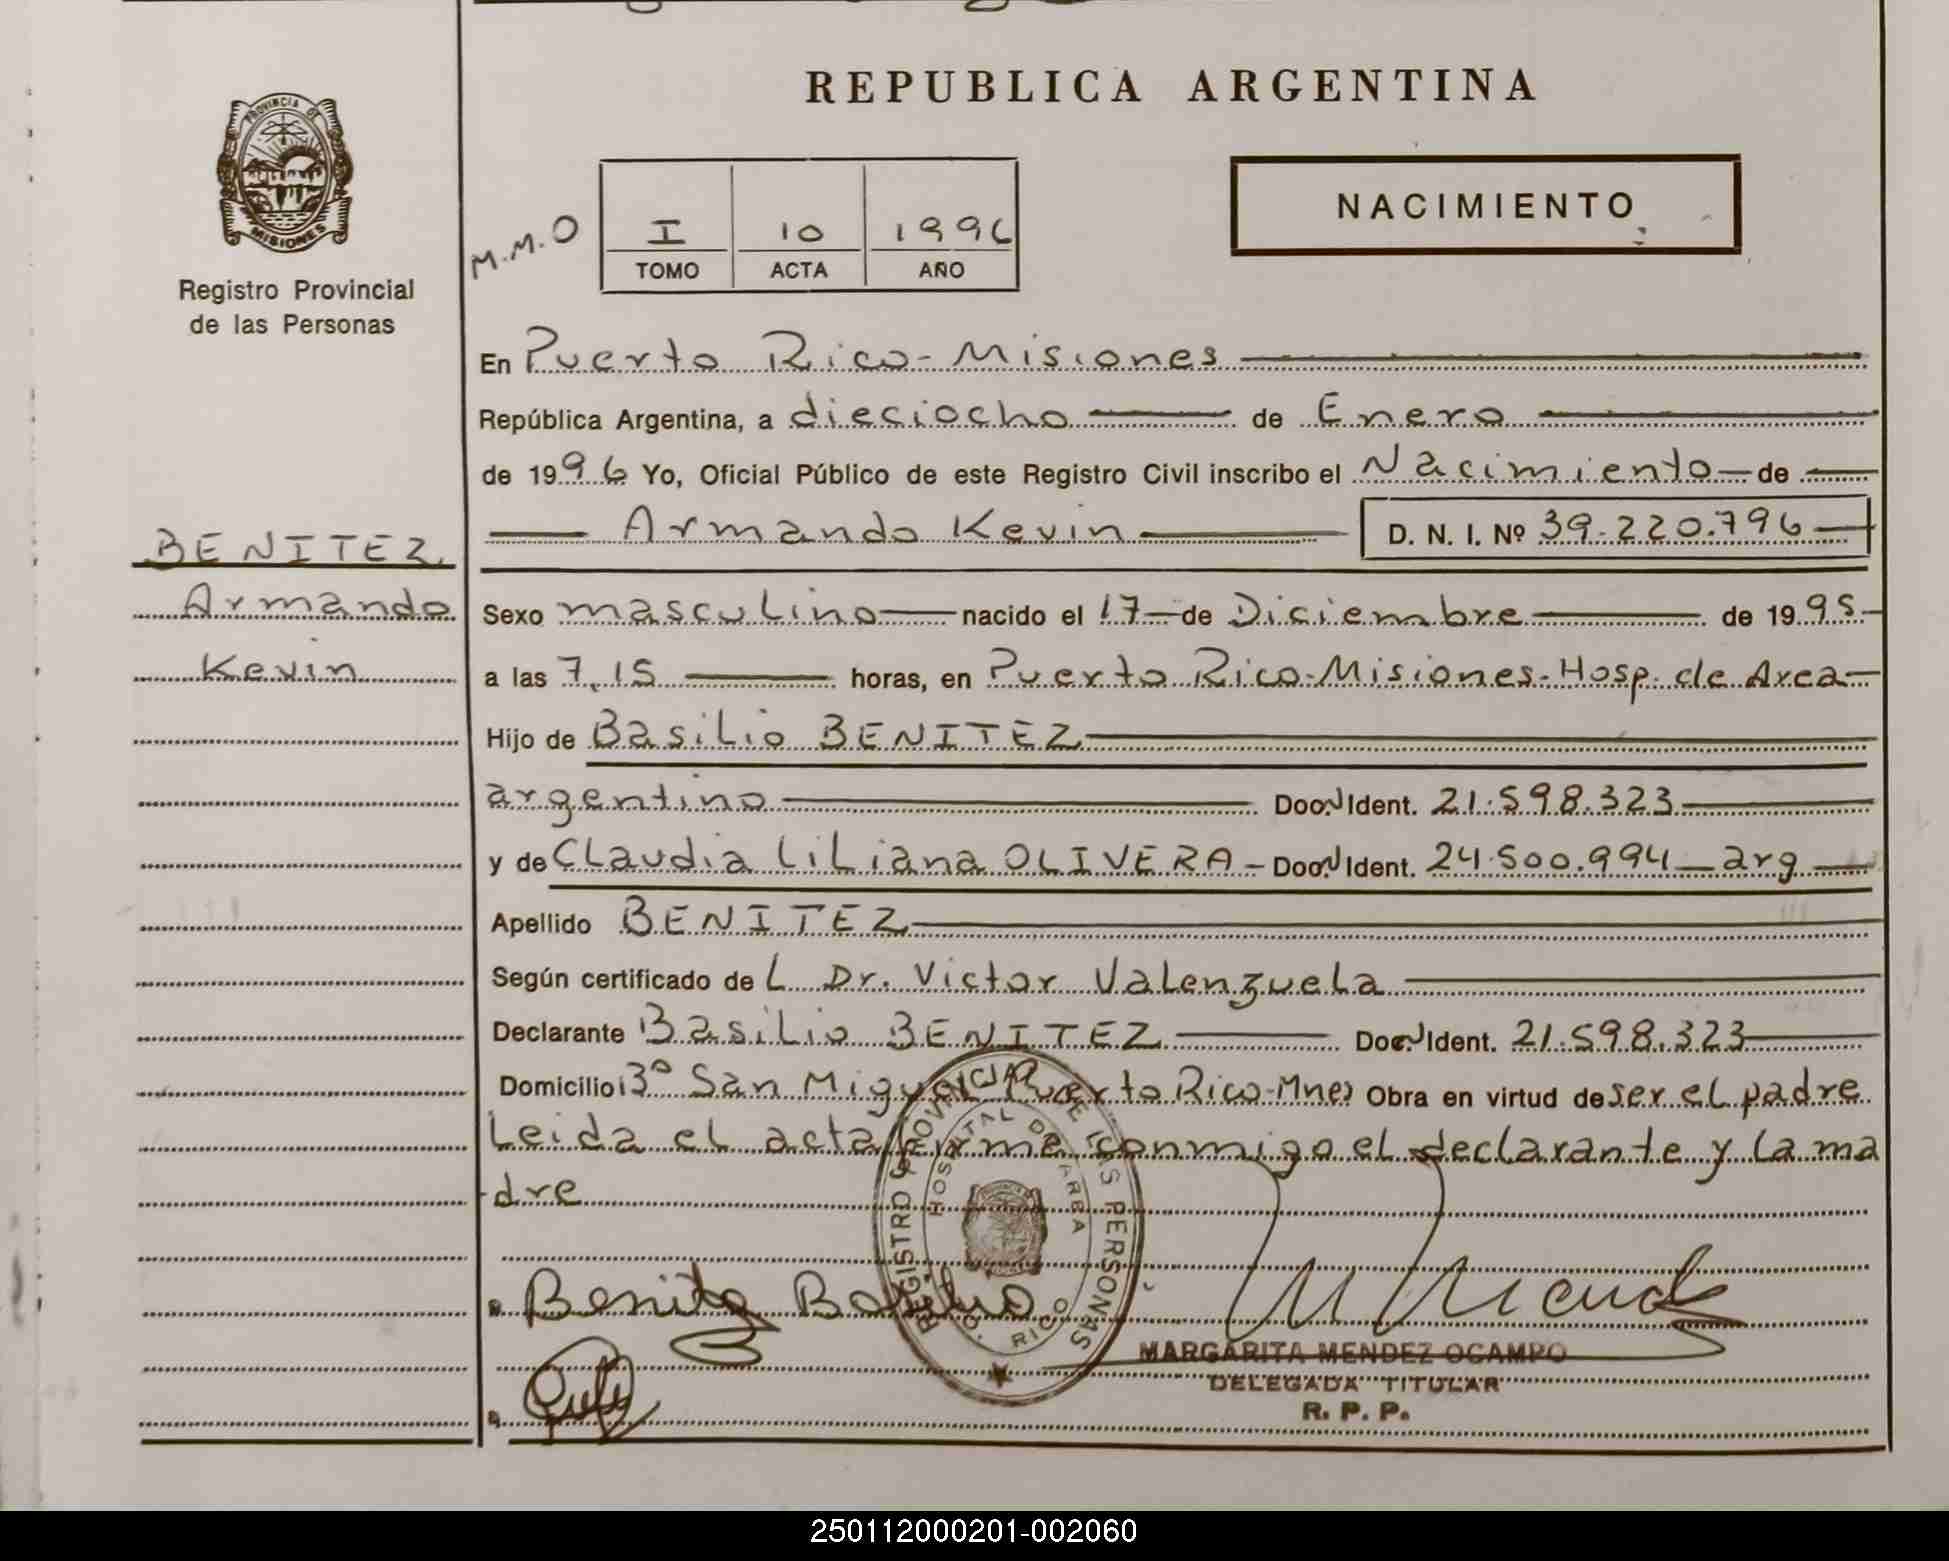 REPUBLICA ARGENTINA
PROVINCIA DE
MISIONES
Registro Provincial
de las Personas
M.M.O
I 10 1996
TOMO ACTA AÑO
NACIMIENTO
En Puerto Rico-Misiones
República Argentina, a dieciocho de Enero
de 1996 Yo, Oficial Público de este Registro Civil inscribo el Nacimiento de
Armando Kevin D. N. I. Nº 39.220.796
BENITEZ
Armando
Kevin
Sexo masculino nacido el 17 de Diciembre de 1995
a las 7,15 horas, en Puerto Rico-Misiones-Hosp. de Area
Hijo de Basilio BENITEZ
argentino Doc. Ident. 21.598.323
y de Claudia Liliana OLIVERA - Doc. Ident. 24.500.994 arg
Apellido BENITEZ
Según certificado de L Dr. Victor Valenzuela
Declarante Basilio BENITEZ Doc. Ident. 21.598.323
Domicilio Bº San Miguel Puerto Rico-Mnes Obra en virtud de ser el padre
Leida el acta firme conmigo el declarante y la ma
dre
REGISTRO PROVINCIAL DE LAS PERSONAS
HOSPITAL DE
RICO
Benitez Basilio
MARGARITA MENDEZ OCAMPO
DELEGADA TITULAR
R. P. P.
250112000201-002060